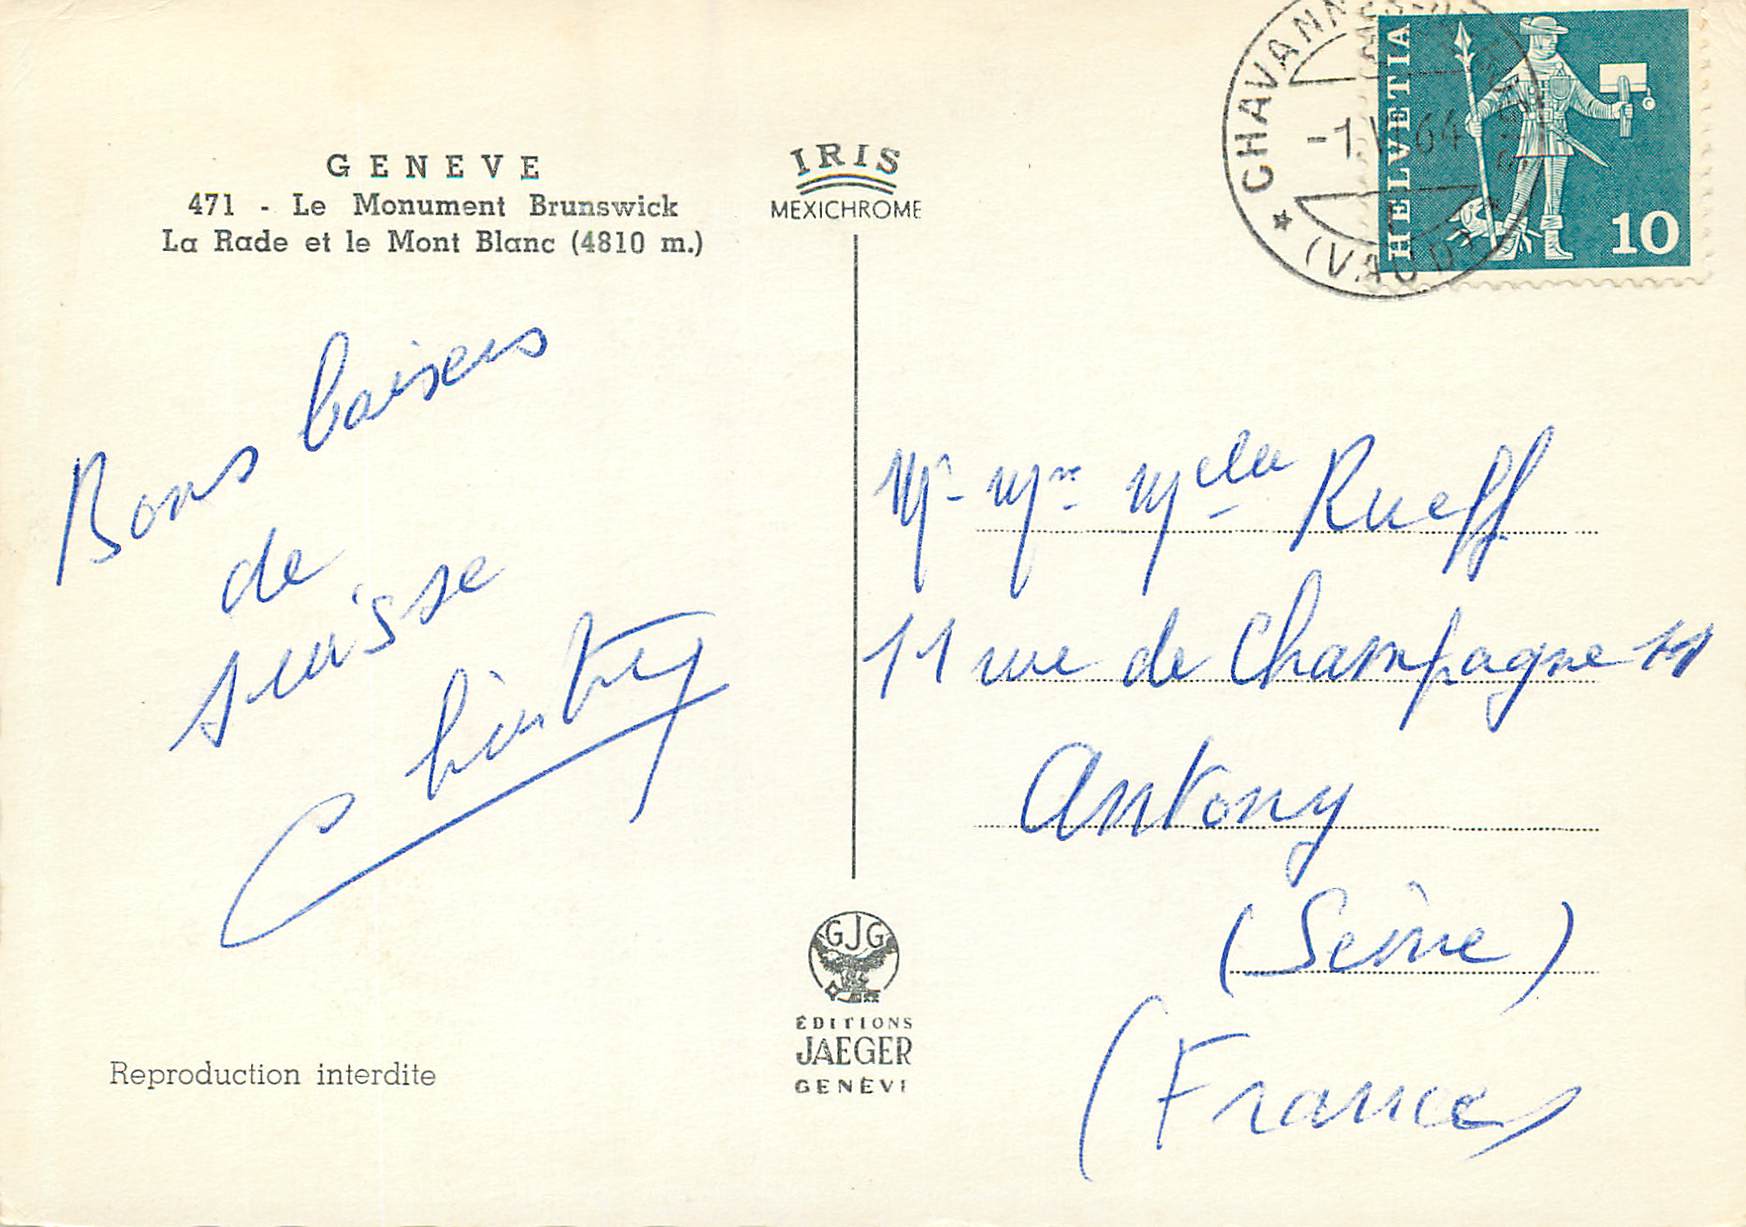 GENEVE
471 - Le Monument Brunswick
La Rade et le Mont Blanc (4810 m.)
IRIS
MEXICHROME
HELVETIA
10
CHAVANNES
-1. 64
(VAUD)
Bons baisers
de
suisse
Mr- Mme Melle Rueff
11 rue de Champagne 11
Antony
(Seine)
(France)
GJG
ÉDITIONS
JAEGER
GENÈVE
Reproduction interdite